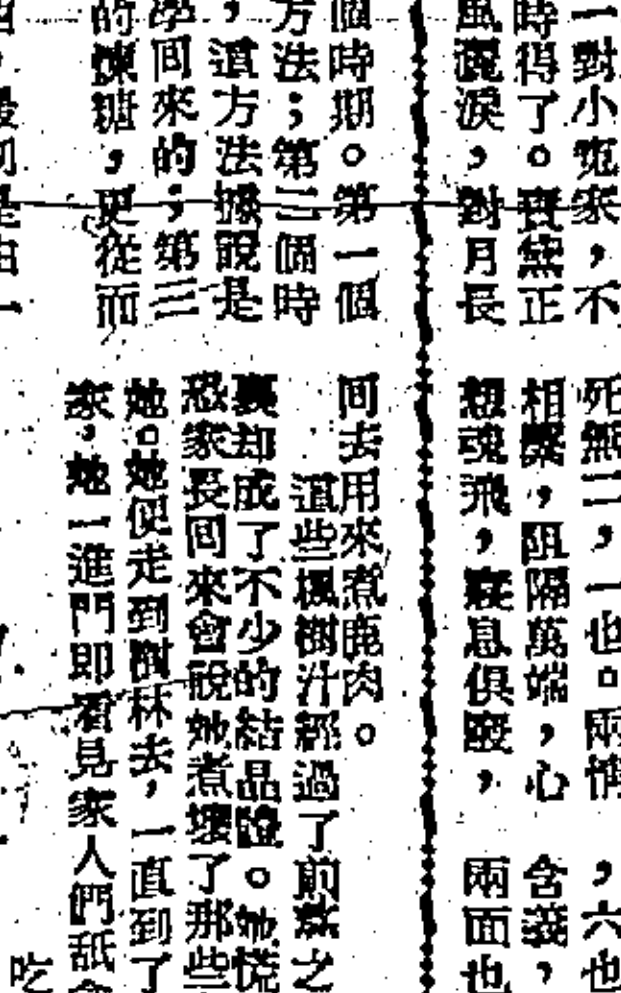 一對小冤家，不
時得了。寶黛正
風灑淚，對月長
死無二，一也。兩情
相繫，阻隔萬端，心
想魂飛，寢息俱廢，
，六也
含義，
兩面也
個時期。第一個
方法；第二個時
，這方法據說是
學回來的；第三
的煉糖，更從而
是由一
回去用來煮鹿肉。
這些楓樹汁經過了煎熬之
裏却成了不少的結晶體。她慌
恐家長回來會說她煮壞了那些
她。她便走到樹林去，一直到了
家，她一進門即看見家人們舐
吃